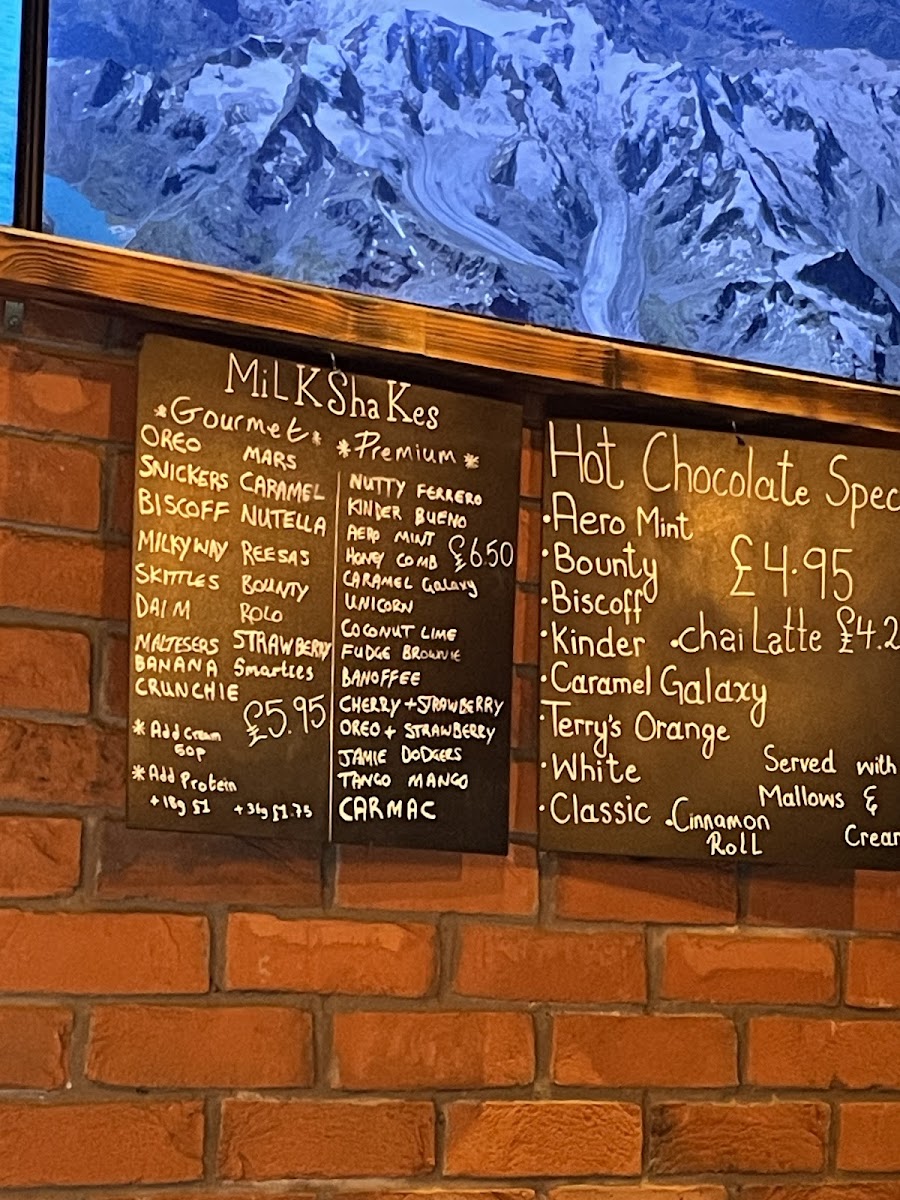 MiLKShaKes
*Gourmet*
OREO MARS
SNICKERS CARAMEL
BISCOFF NUTELLA
MILKYWAY REESAS
SKITTLES BOUNTY
DAIM ROLO
MALTESERS STRAWBERRY
BANANA Smarties
CRUNCHIE
£5.95
*Add Cream
50p
*Add Protein
+18g £1 +36g £1.75
*Premium*
NUTTY FERRERO
KINDER BUENO
AERO MINT
HONEY COMB £6.50
CARAMEL Galaxy
UNICORN
COCONUT LIME
FUDGE BROWNIE
BANOFFEE
CHERRY + STRAWBERRY
OREO + STRAWBERRY
JAMIE DODGERS
TANGO MANGO
CARMAC
Hot Chocolate Spec
•Aero Mint
•Bounty £4.95
•Biscoff
•Kinder •chai Latte £4.2
•Caramel Galaxy
•Terry's Orange
•White
•Classic •Cinnamon
Roll
Served with
Mallows &
Crear